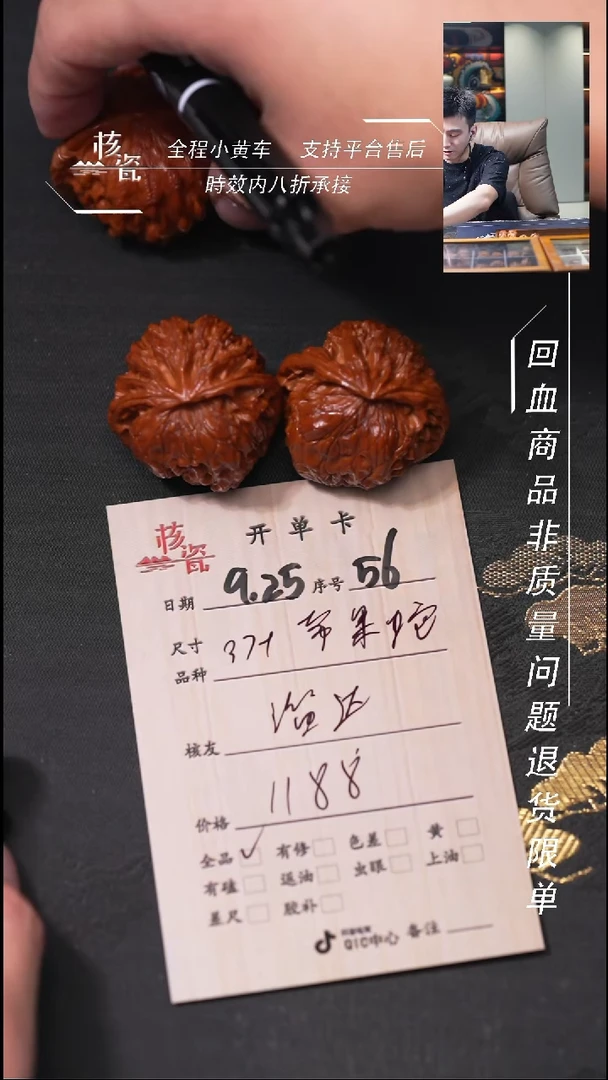 核瓷
全程小黄车 支持平台售后
時效内八折承接
回血商品非质量问题退货限单
核瓷
开单卡
日期 9.25 序号 56
尺寸 37+ 苹果园
品种
核友
价格 1188
全品 ✓ 有修 色差 黄
有磕 返油 虫眼 上油
差尺 胶补
抖音电商
QIC中心 备注